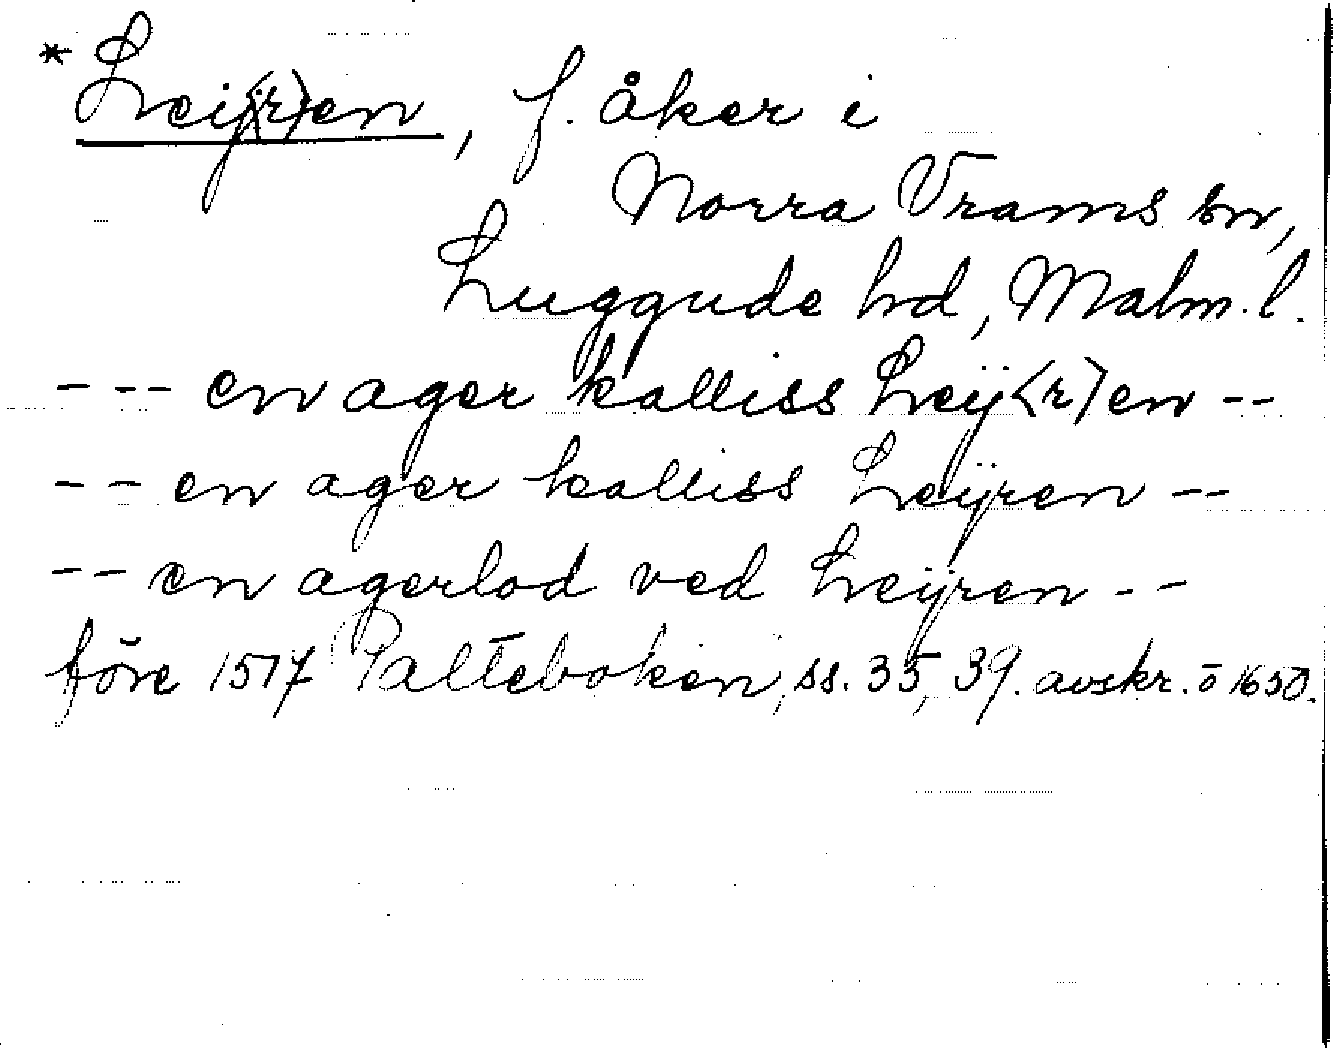 * Leij(r)en, f. åker i
Norra Vrams sn,
Luggude hd, Malm. l.
--- en ager kalliss Leÿ<r>en --
-- en ager kalliss Leÿren --
-- en agerlod ved Leÿren --
före 1517 Palteboken, ss. 35, 39. avskr. ō 1650.